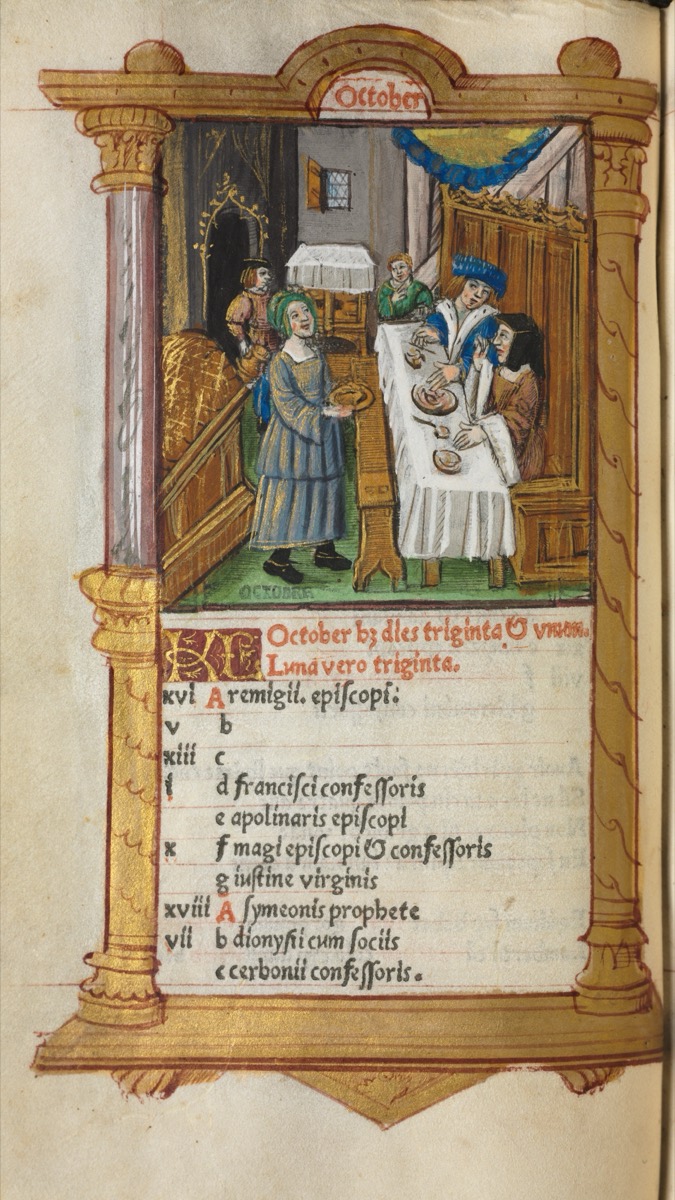 October
OCTOBRE
KL October hꝫ dies triginta & vnum.
Luna vero triginta.
xvi A remigii. episcopi:
v b
xiii c
i d francisci confessoris
e apolinaris episcopi
x f magi episcopi & confessoris
g iustine virginis
xviii A symeonis prophete
vii b dionysii cum sociis
c cerbonii confessoris.